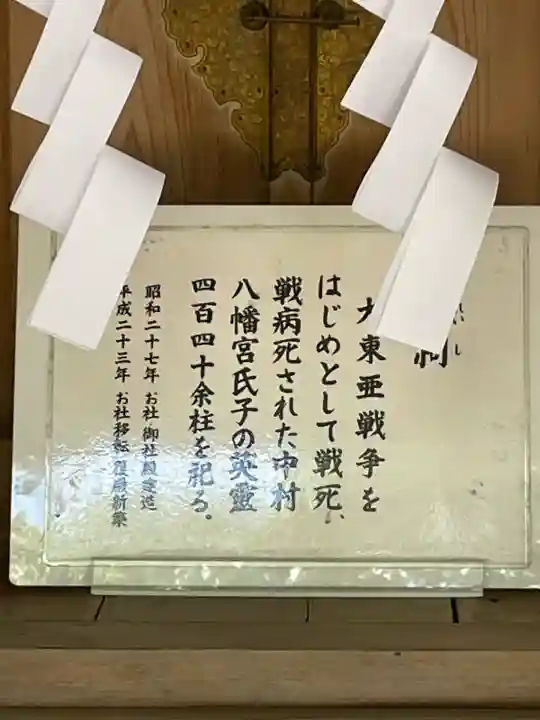 祠
大東亜戦争を
はじめとして戦死、
戦病死された中村
八幡宮氏子の英霊
四百四十余柱を祀る。
昭和二十七年 お社 御社殿造
平成二十三年 お社移転 新築